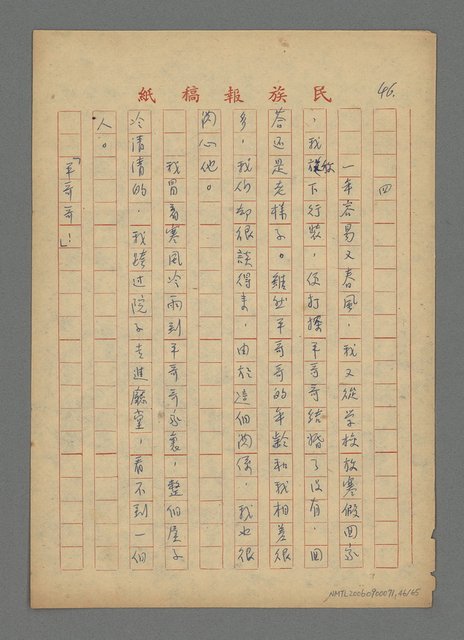 46.
民族報稿紙
四
一年容易又春風,我又從学校放寒假回家
,我放下行裝,便打探平哥哥結婚了沒有,回
答还是老樣子。雖然平哥哥的年齡和我相差很
多,我们却很談得来,由於這個関係,我也很
関心他。
我冒着寒風冷雨到平哥哥家裏,整個屋子
冷清清的,我跨过院子走進廳堂,看不到一個
人。
「平哥哥!」
NMTL20060900071,46/65